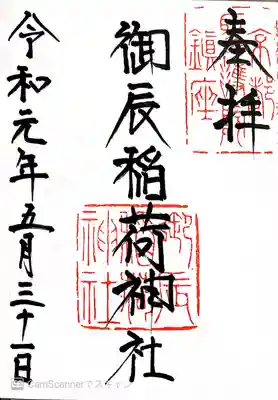 奉拝
御辰稲荷神社
令和元年五月三十一日
御辰稲荷神社
CamScannerでスキャン